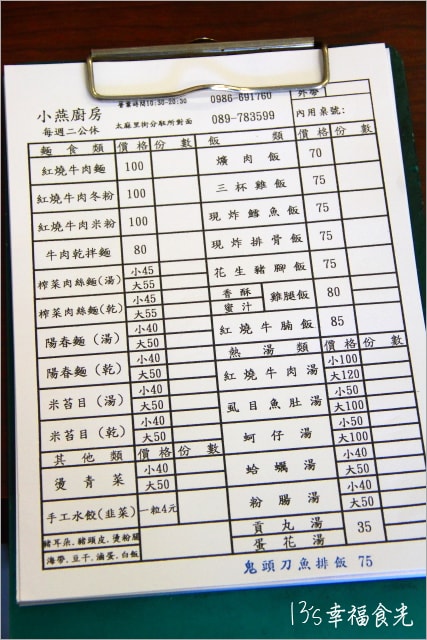 小燕廚房
每週二公休
營業時間10:30-20:30
0986-691760
太麻里街分駐所對面
089-783599
外帶
內用 桌號:
麵食類 價格 份數
紅燒牛肉麵 100
紅燒牛肉冬粉 100
紅燒牛肉米粉 100
牛肉乾拌麵 80
榨菜肉絲麵(湯) 小45 大55
榨菜肉絲麵(乾) 小45 大55
陽春麵(湯) 小40 大50
陽春麵(乾) 小40 大50
米苔目(湯) 小40 大50
米苔目(乾) 小40 大50
其他類 價格 份數
燙青菜 小40 大50
手工水餃(韭菜) 一粒4元
豬耳朵、豬頭皮、燙粉腸
海帶、豆干、滷蛋、白飯
飯類 價格 份數
爌肉飯 70
三杯雞飯 75
現炸鱈魚飯 75
現炸排骨飯 75
花生豬腳飯 75
香酥 蜜汁 雞腿飯 80
紅燒牛腩飯 85
熱湯類 價格 份數
紅燒牛肉湯 小100 大120
虱目魚肚湯 小50 大100
蚵仔湯 小50 大100
蛤蠣湯 小40 大50
粉腸湯 小40 大50
貢丸湯 35
蛋花湯
鬼頭刀魚排飯 75
13's幸福食光